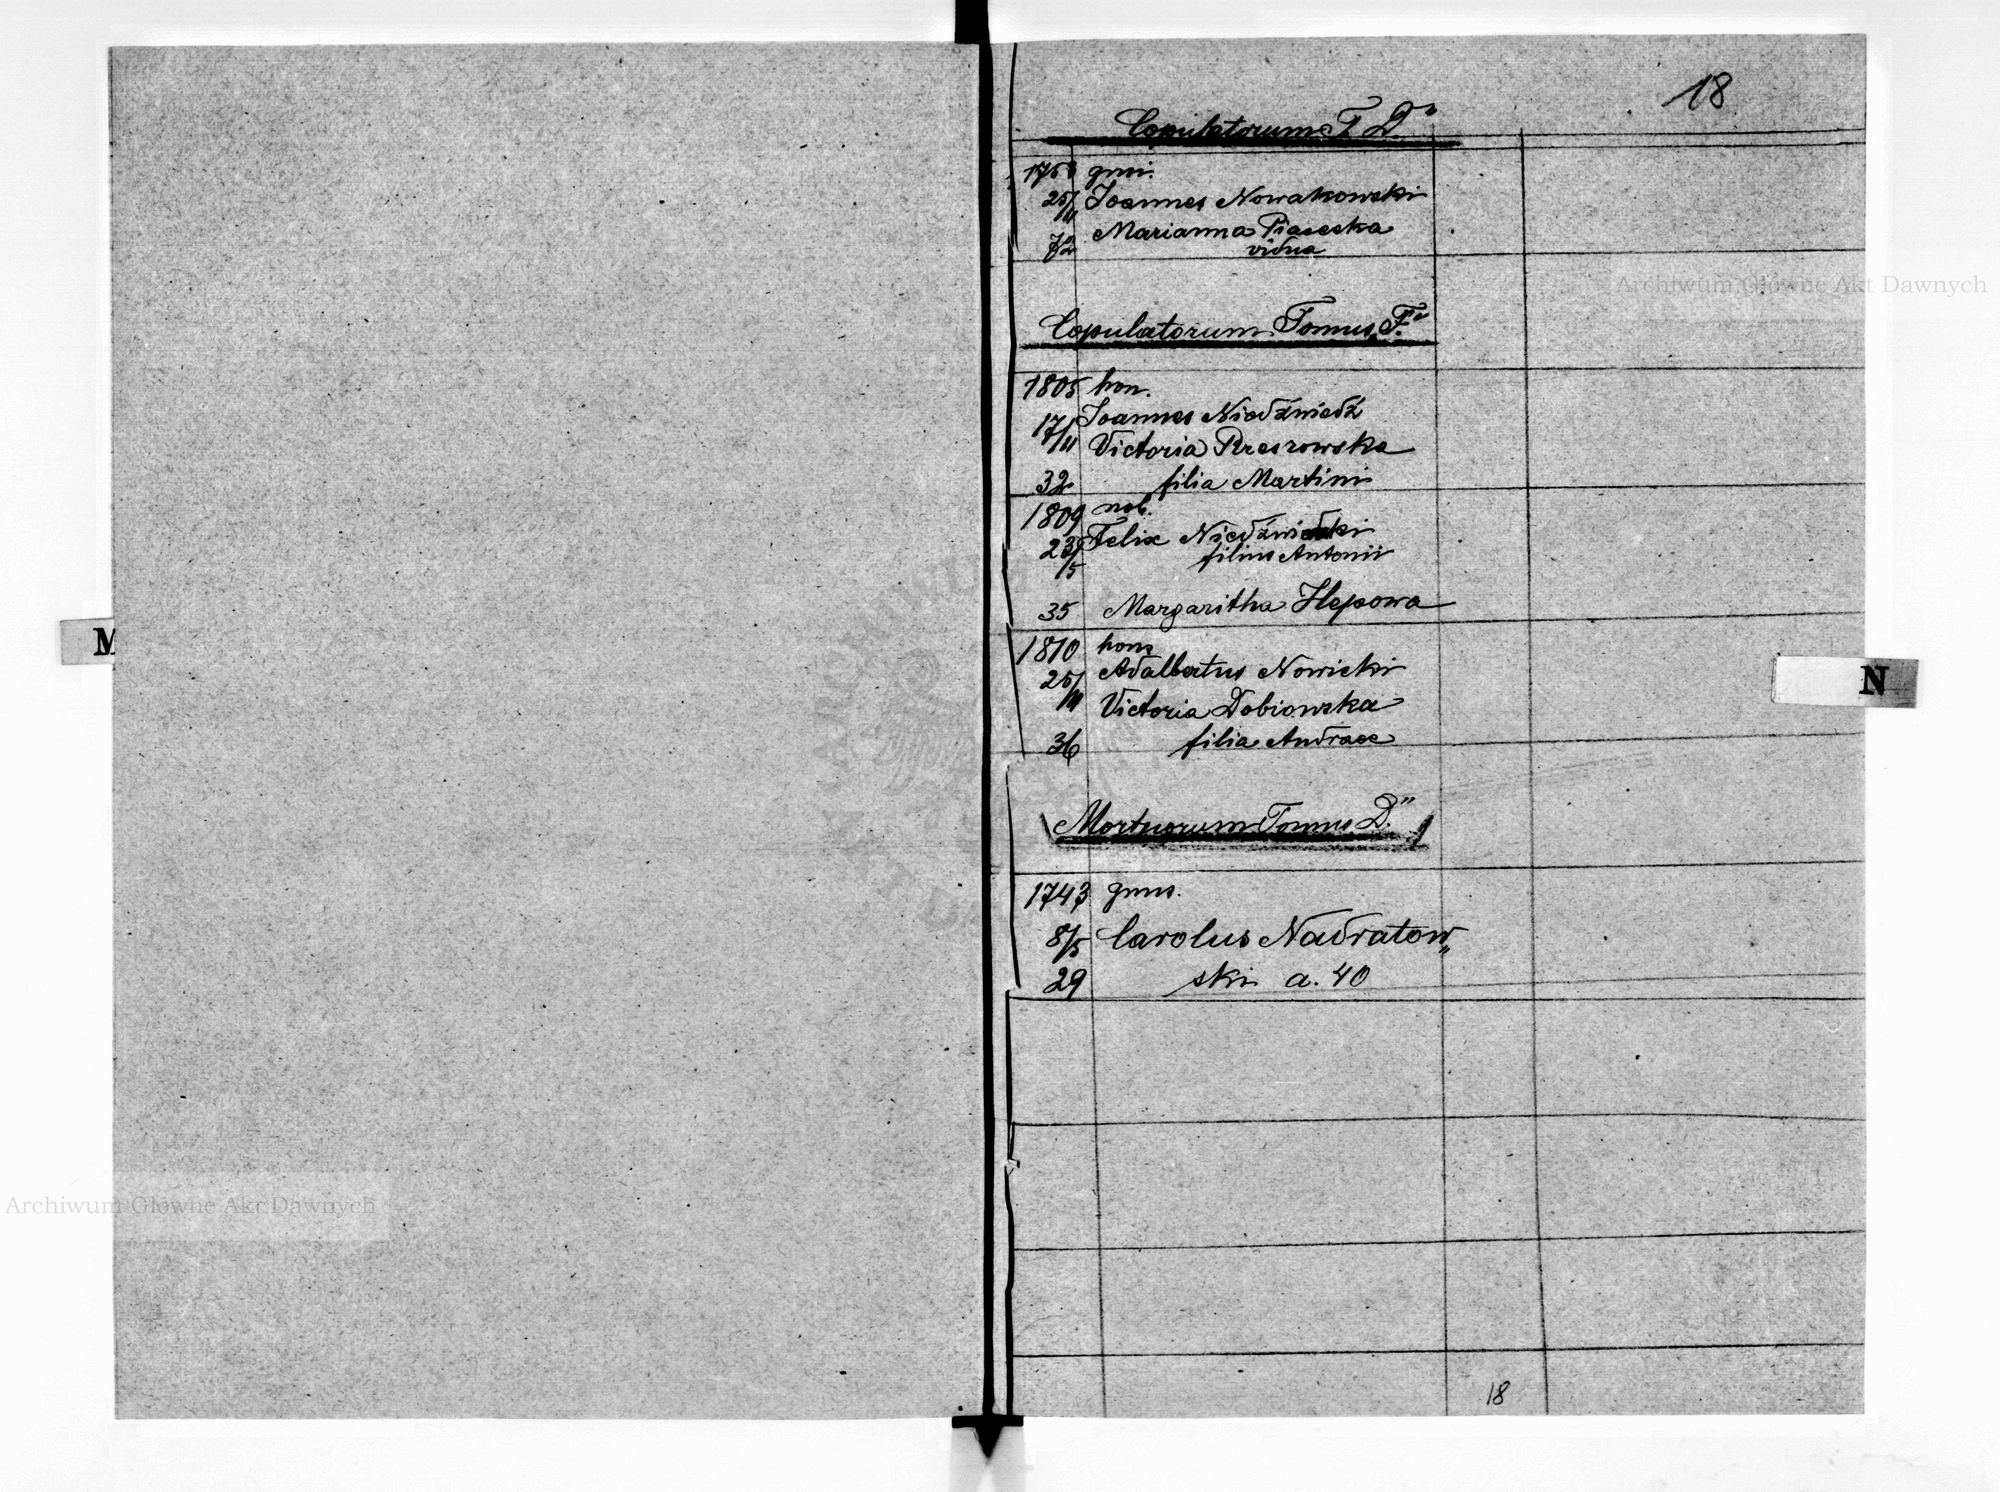 18
Copulatorum T. D"
1758 gnni.
25/11 Joannes Nowakowski
Marianna Piasecka
72 vidua
Archiwum Główne Akt Dawnych
Copulatorum Tomus F."
1805 hon.
17/11 Joannes Niedźwiedź
Victoria Rzeszowska
32 filia Martini
1809 nob.
23/5 Felix Niedźwiedzki
filius Antonii
35 Margaritha Hepowa
1810 hon.
M
25/11 Adalbertus Nowicki
N
Victoria Dobrowska
36 filia Andreae
Mortuorum Tomus D."
1743 gnus.
8/5 Carolus Nadratow„
29 ski a. 40
Archiwum Główne Akt Dawnych
18